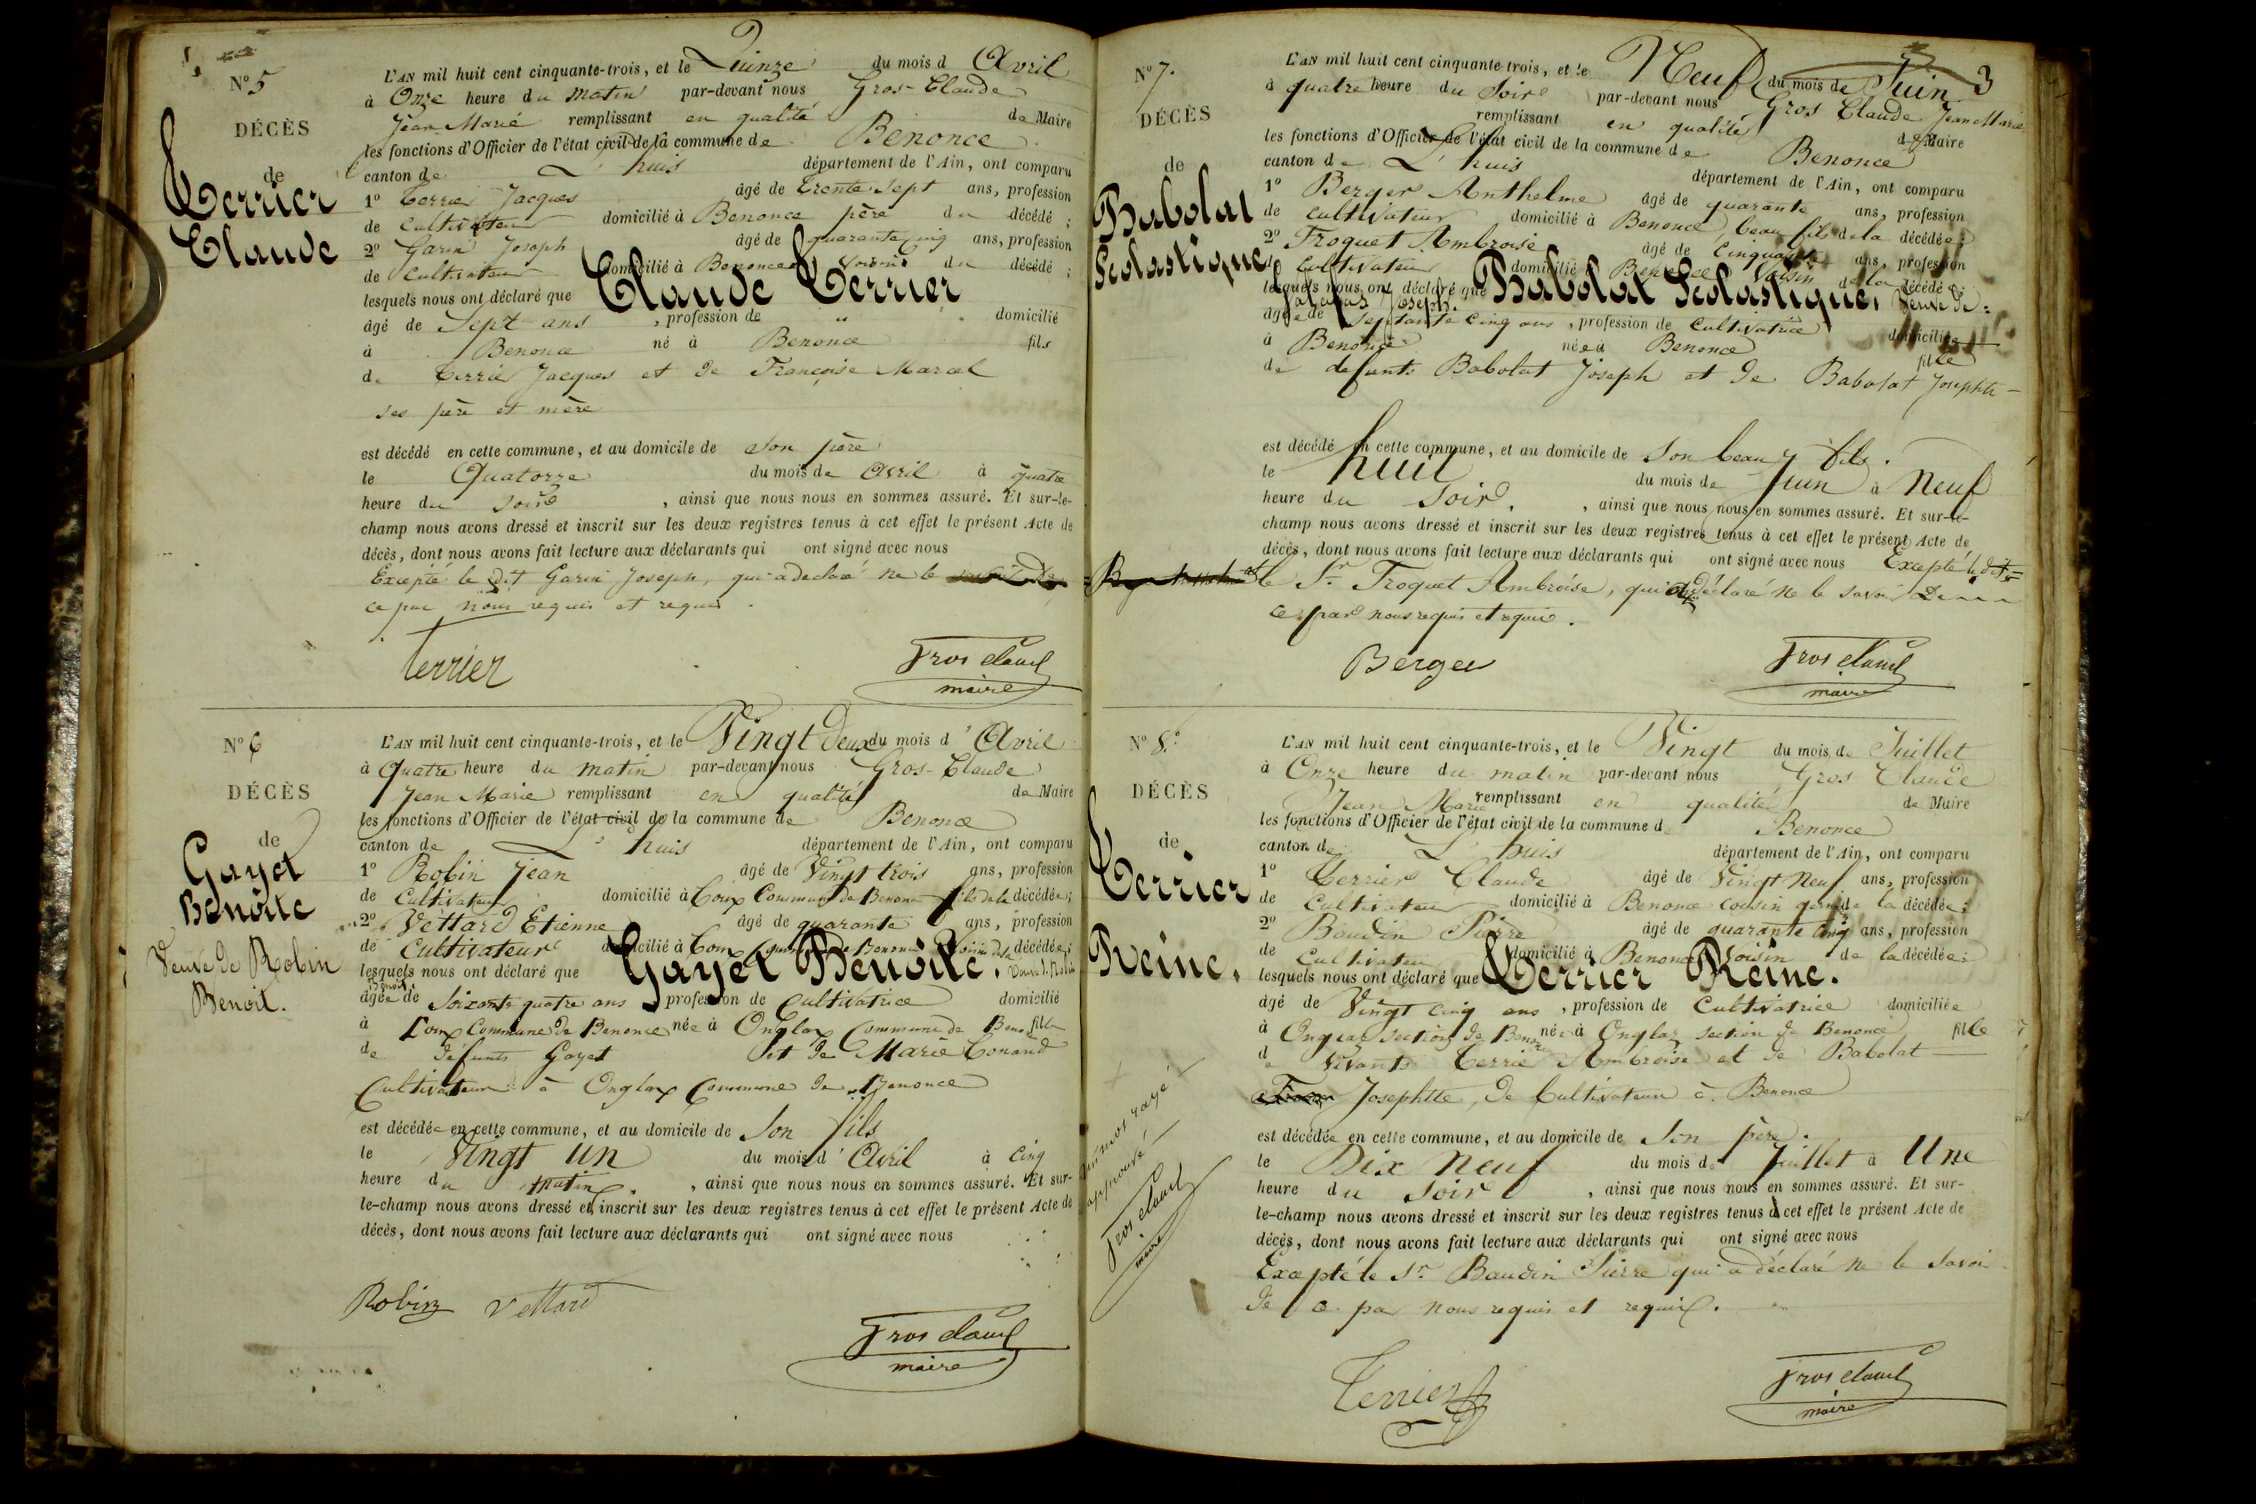 N° 5
DÉCÈS
de
Terrier
Claude
L'AN mil huit cent cinquante-trois, et le Quinze du mois d Avril
à Onze heure du matin par-devant nous Gros-Claude
Jean Marie remplissant en qualité de Maire
les fonctions d'Officier de l'état civil de la commune de Benonce
canton de L'huis département de l'Ain, ont comparu
1° Terrier Jacques âgé de Trente Sept ans, profession
de Cultivateur domicilié à Benonce père du décédé;
2° Garin Joseph âgé de quarante cinq ans, profession
de Cultivateur domicilié à Benonce voisin du décédé;
lesquels nous ont déclaré que Claude Terrier
âgé de Sept ans, profession de " domicilié
à Benonce né à Benonce fils
de Terrier Jacques et de Françoise Marcel
ses père et mère
est décédé en cette commune, et au domicile de son père
le Quatorze du mois de Avril à quatre
heure du soir, ainsi que nous nous en sommes assuré. Et sur-le-
champ nous avons dressé et inscrit sur les deux registres tenus à cet effet le présent Acte de
décès, dont nous avons fait lecture aux déclarants qui ont signé avec nous
Excepté le dit Garin Joseph, qui a déclaré ne le
ce par nous requis et requis.
Terrier
Gros claude
maire
N° 6
DÉCÈS
de
Gayet
Benoîte
Veuve de Robin
Benoit.
L'AN mil huit cent cinquante-trois, et le Vingt deux du mois d'Avril
à Quatre heure du matin par-devant nous Gros-Claude
Jean Marie remplissant en qualité de Maire
les fonctions d'Officier de l'état civil de la commune de Benonce
canton de L'huis département de l'Ain, ont comparu
1° Robin Jean âgé de Vingt trois ans, profession
de Cultivateur domicilié à Commune de Benonce fils de la décédée;
2° Vettard Etienne âgé de quarante ans, profession
de Cultivateur domicilié à décédée;
lesquels nous ont déclaré que Gayet Benoîte. Veuve d. Robin
Benoit
âgée de Soixante quatre ans profession de Cultivatrice domicilié
à Commune de Benonce née à Onglax Commune de Benonce fille
de défunts Gayet et de Marie Conand
Cultivateurs à Onglax Commune de Benonce
est décédée en cette commune, et au domicile de Son fils
le Vingt un du mois d'Avril à cinq
heure du matin, ainsi que nous nous en sommes assuré. Et sur-
le-champ nous avons dressé et inscrit sur les deux registres tenus à cet effet le présent Acte de
décès, dont nous avons fait lecture aux déclarants qui ont signé avec nous
Robin Vettard
Gros claude
maire
3
N° 7.
DÉCÈS
de
Babolat
Scolastique
L'AN mil huit cent cinquante-trois, et le Neuf du mois de Juin
à quatre heure du Soir par-devant nous Gros Claude Jean Marie
remplissant en qualité de Maire
les fonctions d'Officier de l'état civil de la commune de Benonce
canton de L'huis département de l'Ain, ont comparu
1° Berger Anthelme âgé de quarante ans, profession
de cultivateur domicilié à Benonce, beau fils de la décédée;
2° Troquet Ambroise âgé de Cinquante ans, profession
Cultivateur domicilié Benonce Voisin de la décédé;
lesquels nous ont déclaré que Babolat Scolastique, Veuve de
Joseph.
âgée de septante cinq ans, profession de Cultivatrice domiciliée
à Benonce née à Benonce fille
de défunts Babolat Joseph et de Babolat Josephte
est décédé en cette commune, et au domicile de Son beau fils.
le huit du mois de Juin à Neuf
heure du Soir, ainsi que nous nous en sommes assuré. Et sur-le-
champ nous avons dressé et inscrit sur les deux registres tenus à cet effet le présent Acte de
décès, dont nous avons fait lecture aux déclarants qui ont signé avec nous Excepté
le Sr Troquet Ambroise, qui a déclaré ne le savoir De
ce par nous requis et requis.
Berger
Gros claude
maire
N° 8.
DÉCÈS
de
Terrier
Reine.
un mot rayé
approuvé
Gros claude
maire
L'AN mil huit cent cinquante-trois, et le Vingt du mois de Juillet
à Onze heure du matin par-devant nous Gros Claude
Jean Marie remplissant en qualité de Maire
les fonctions d'Officier de l'état civil de la commune d Benonce
canton de L'huis département de l'Ain, ont comparu
1° Terrier Claude âgé de Vingt Neuf ans, profession
de Cultivateur domicilié à Benonce cousin germ de la décédée;
2° Baudin Pierre âgé de quarante cinq ans, profession
de Cultivateur domicilié à Benonce Voisin de la décédée;
lesquels nous ont déclaré que Terrier Reine.
âgé de Vingt cinq ans, profession de Cultivatrice domiciliée
à Onglax section de Benonce née à Onglax section de Benonce fille
d Vivants Terrier Ambroise et de Babolat
Josephtte, de Cultivateur à Benonce
est décédée en cette commune, et au domicile de Son père.
le Dix Neuf du mois de Juillet à Une
heure du Soir, ainsi que nous nous en sommes assuré. Et sur-
le-champ nous avons dressé et inscrit sur les deux registres tenus à cet effet le présent Acte de
décès, dont nous avons fait lecture aux déclarants qui ont signé avec nous
Excepté le Sr Baudin Pierre qui a déclaré ne le savoir
de ce par nous requis et requis.
Terrier
Gros claude
maire